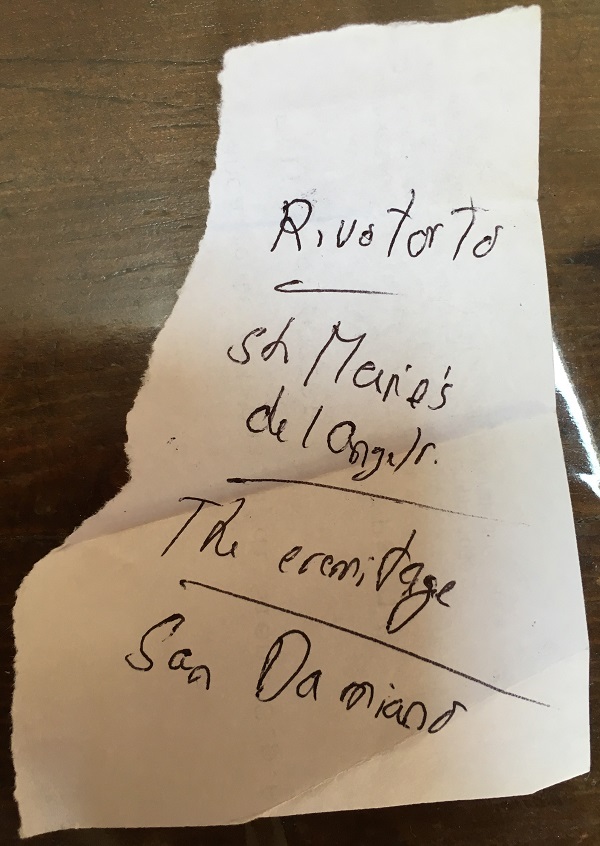 Rivotorto
St Marie's
del Angeli.
The eremitage
San Damiano